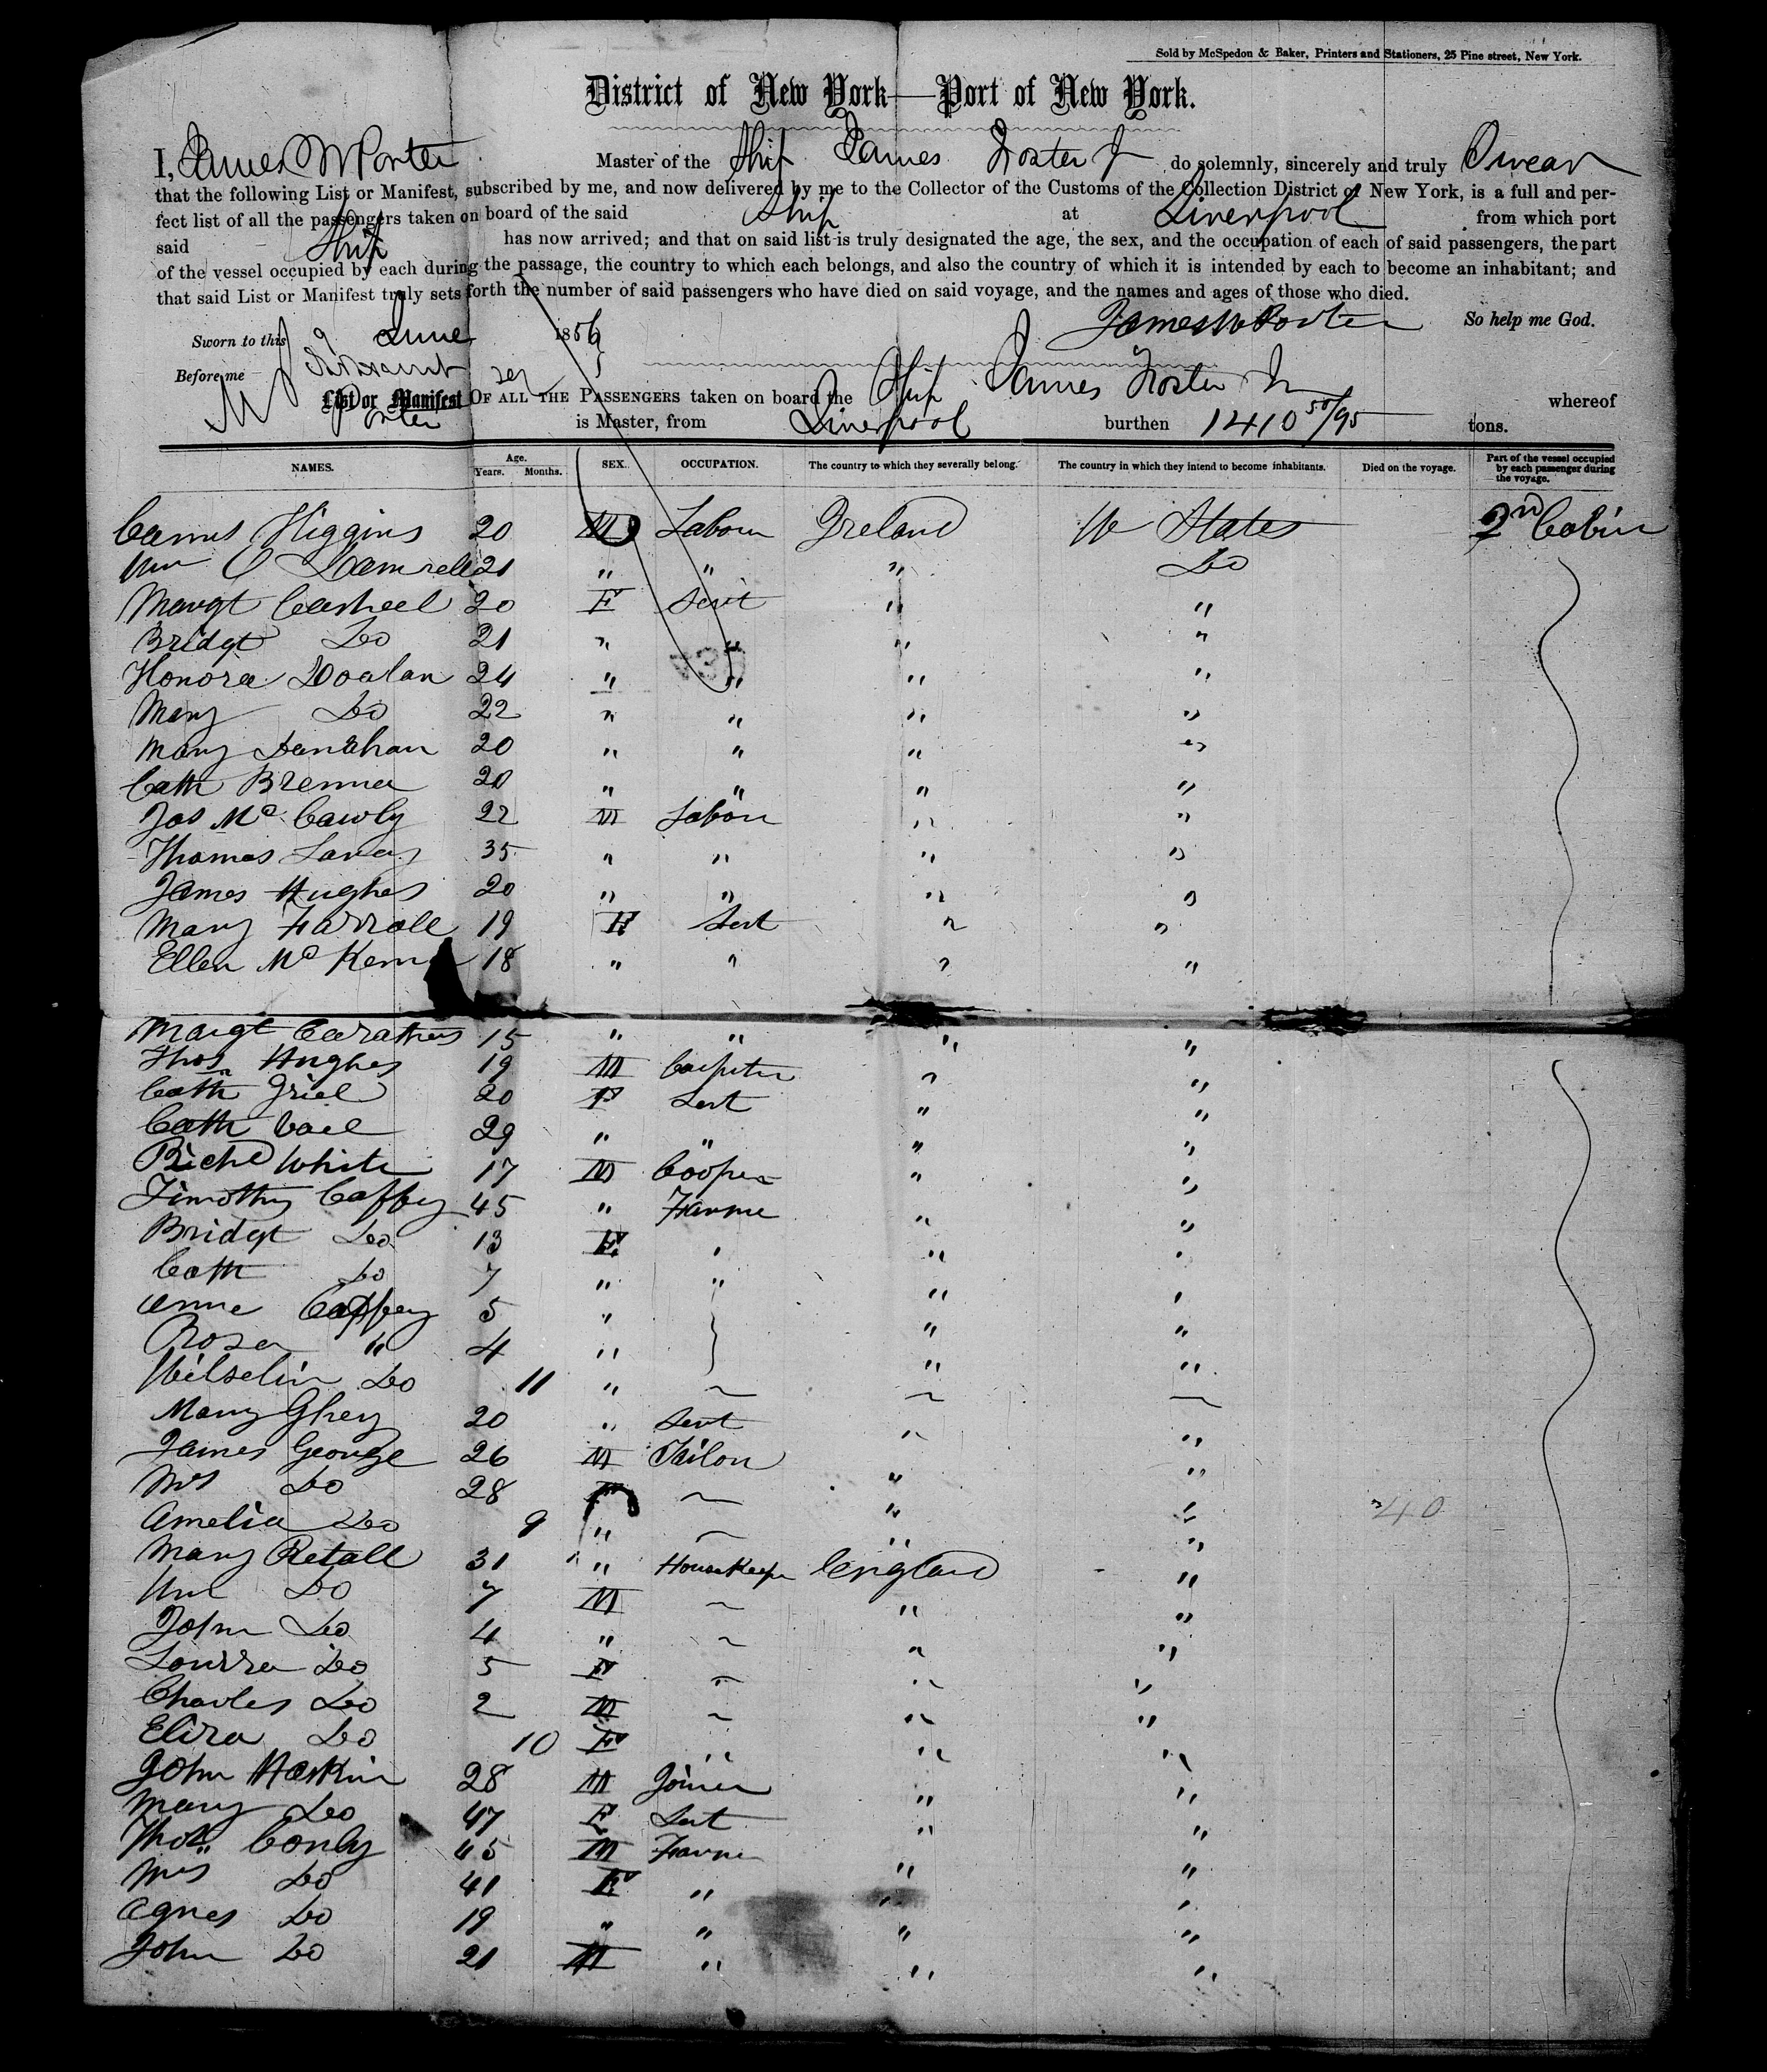 Sold by McSpedon & Baker, Printers and Stationers, 25 Pine street, New York.
District of New York—Port of New York.
I, James W Porter Master of the Ship James Foster Jr do solemnly, sincerely and truly Swear
that the following List or Manifest, subscribed by me, and now delivered by me to the Collector of the Customs of the Collection District of New York, is a full and per-
fect list of all the passengers taken on board of the said Ship at Liverpool from which port
said Ship has now arrived; and that on said list is truly designated the age, the sex, and the occupation of each of said passengers, the part
of the vessel occupied by each during the passage, the country to which each belongs, and also the country of which it is intended by each to become an inhabitant; and
that said List or Manifest truly sets forth the number of said passengers who have died on said voyage, and the names and ages of those who died.
James W Porter So help me God.
Sworn to this 9 June 1856
Before me
List or Manifest OF ALL THE PASSENGERS taken on board the Ship James Foster Jr whereof
Porter is Master, from Liverpool burthen 1410 50/95 tons.
NAMES. Age. Years. Months. SEX. OCCUPATION. The country to which they severally belong. The country in which they intend to become inhabitants. Died on the voyage. Part of the vessel occupied by each passenger during the voyage.
Higgins 20 M Labour Ireland U States 2nd Cabin
Wm 21 " " " Do
Margt Casheel 20 F Servt " "
Bridgt Do 21 " " " "
Honora Doolan 24 " " " "
Mary Do 22 " " " "
Mary Danahan 20 " " " "
Cath Brenna 20 " " " "
Jas McCawly 22 M Labour " "
Thomas 35 " " " "
James Hughes 20 " " " "
Mary Farrall 19 F Servt " "
Ellen McKenna 18 " " " "
Margt Carathers 15 " " " "
Thos Hughes 19 M Carpenter " "
Cath Friel 20 F Servt " "
Cath Vail 29 " " " "
Richd White 17 M Cooper " "
Timothy Caffey 45 " Farmer " "
Bridgt Do 13 F " " "
Cath Do 7 " " " "
Anne Caffey 5 " " "
Rosa " 4 " " "
Do 11 " ~ ~ ~
Mary Ghey 20 " Servt " "
James George 26 M Tailor " "
Mrs Do 28 F ~ " "
Amelia Do 9 " ~ " " 240
Mary Retall 31 " HouseKeeper England "
Wm Do 7 M ~ " "
John Do 4 " ~ " "
Do 5 F ~ " "
Charles Do 2 M ~ " "
Eliza Do 10 F " " "
John Haskin 28 M Joiner " "
Mary Do 47 F Servt " "
Thos Conly 45 M Farmer " "
Mrs Do 41 F " " "
Agnes Do 19 " " " "
John Do 21 M " " "